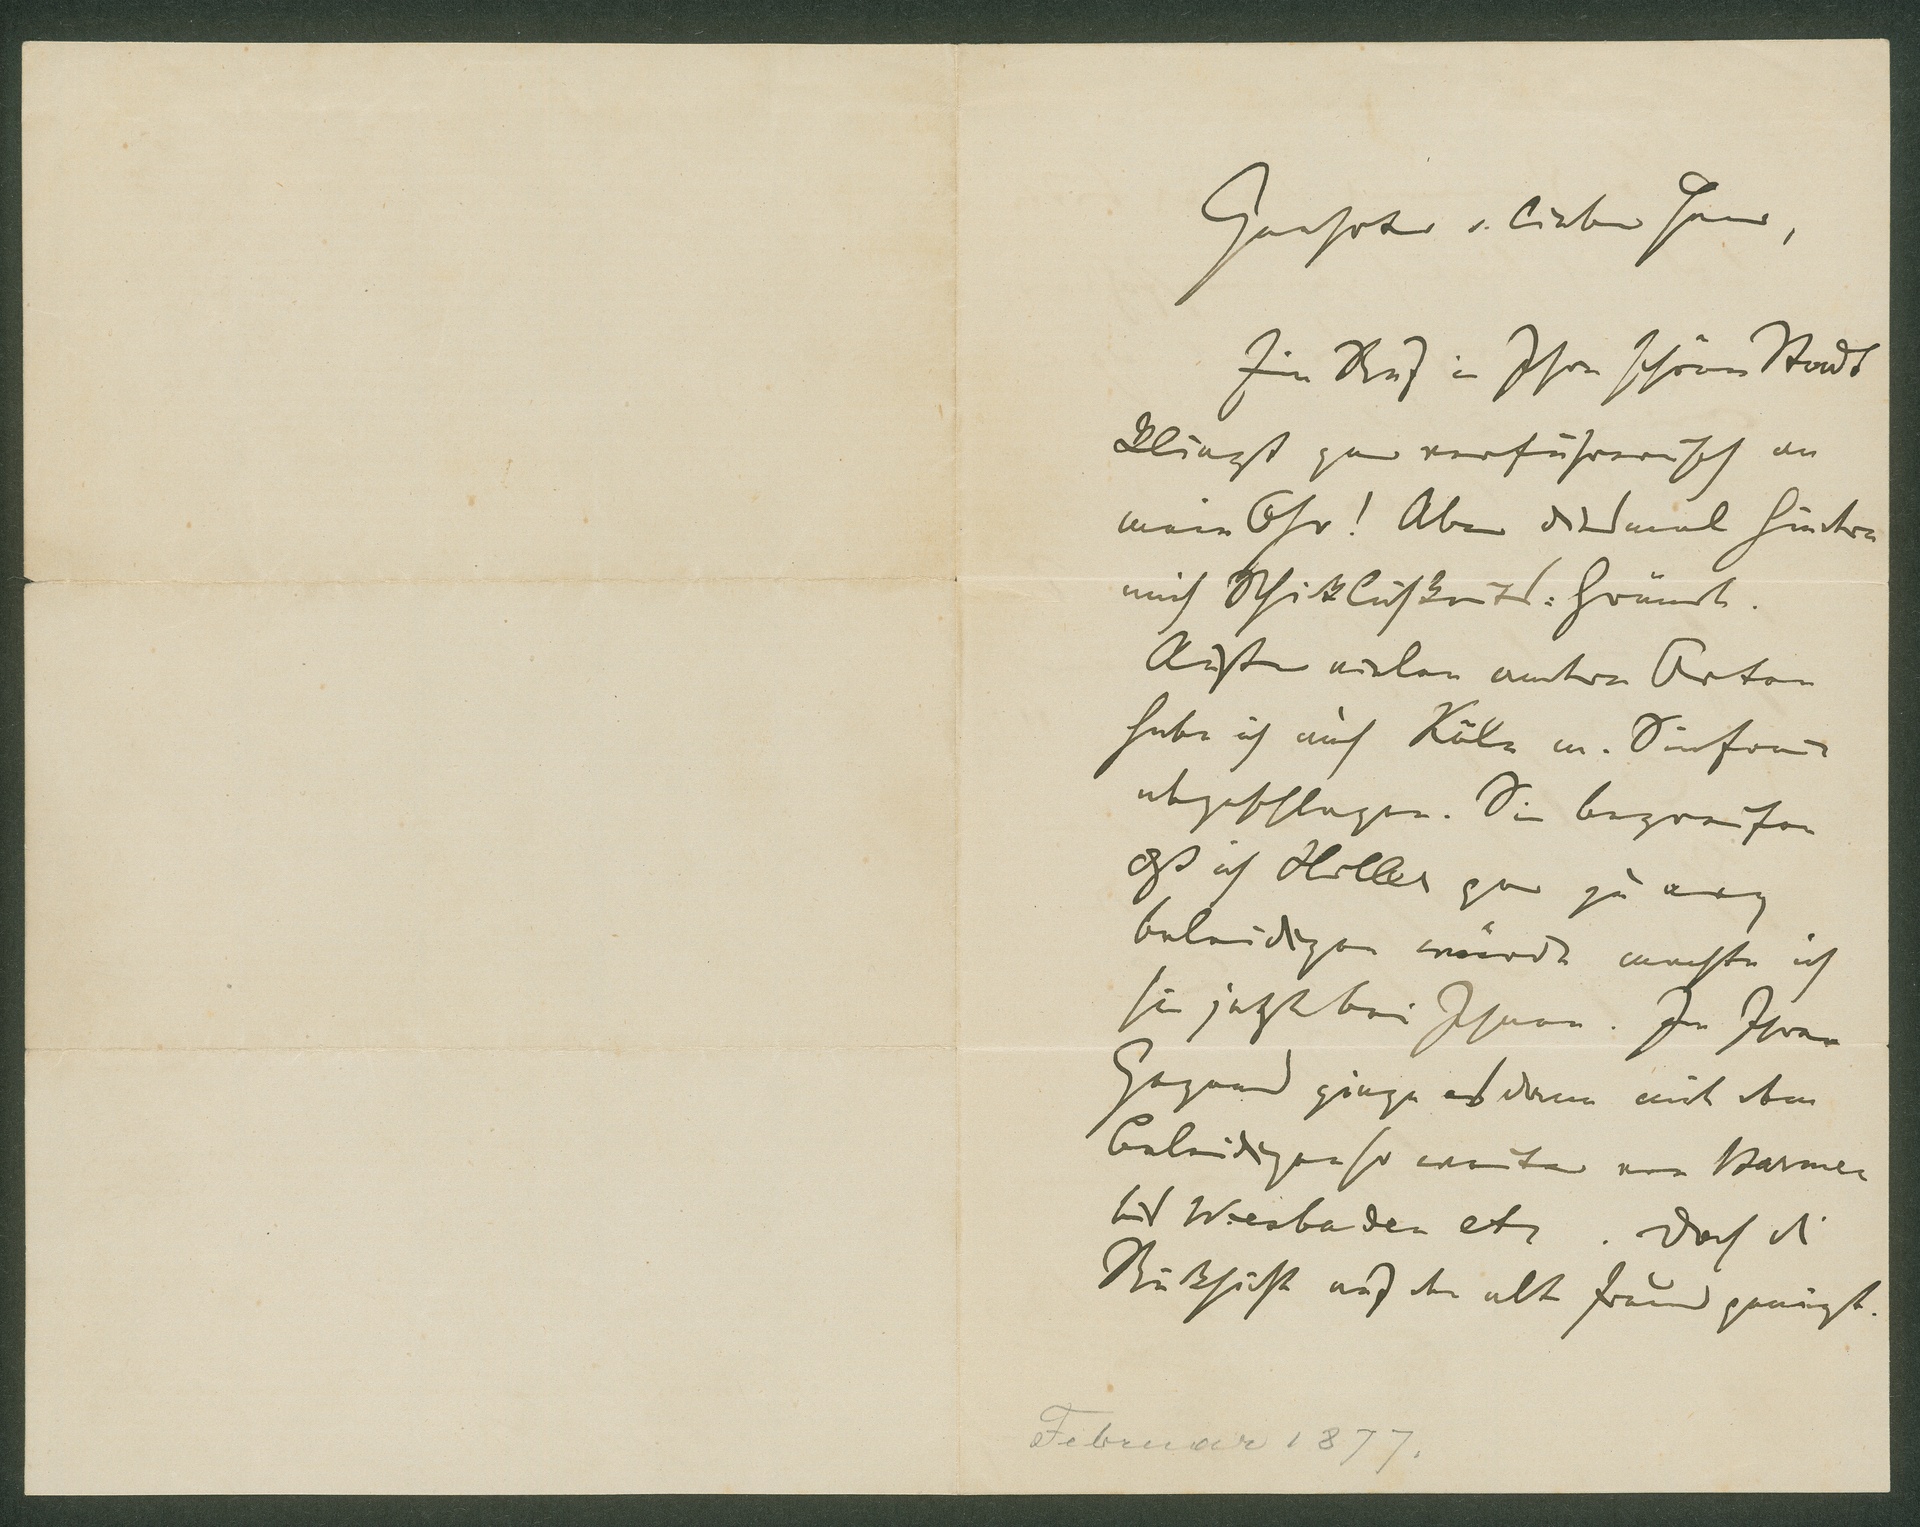 Geehrter u. lieber Herr,
Ein Ruf in Ihre schöne Stadt
klingt gar verführerisch an
mein Ohr! Aber diesmal hindern
mich Schicklichkeits-Gründe.
Außer vielen andern Orten
habe ich auch Köln m. Sinfonie
abgeschlagen. Sie begreifen
daß ich Hiller gar zu arg
beleidigen würde machte ich
sie jetzt bei Ihnen. In Ihrer
Gegend ginge es dann mit dem
Beleidigen so weiter von Barmen
bis Wiesbaden etc. Doch die
Rücksicht auf den alten Freund genügt.
Februar 1877.